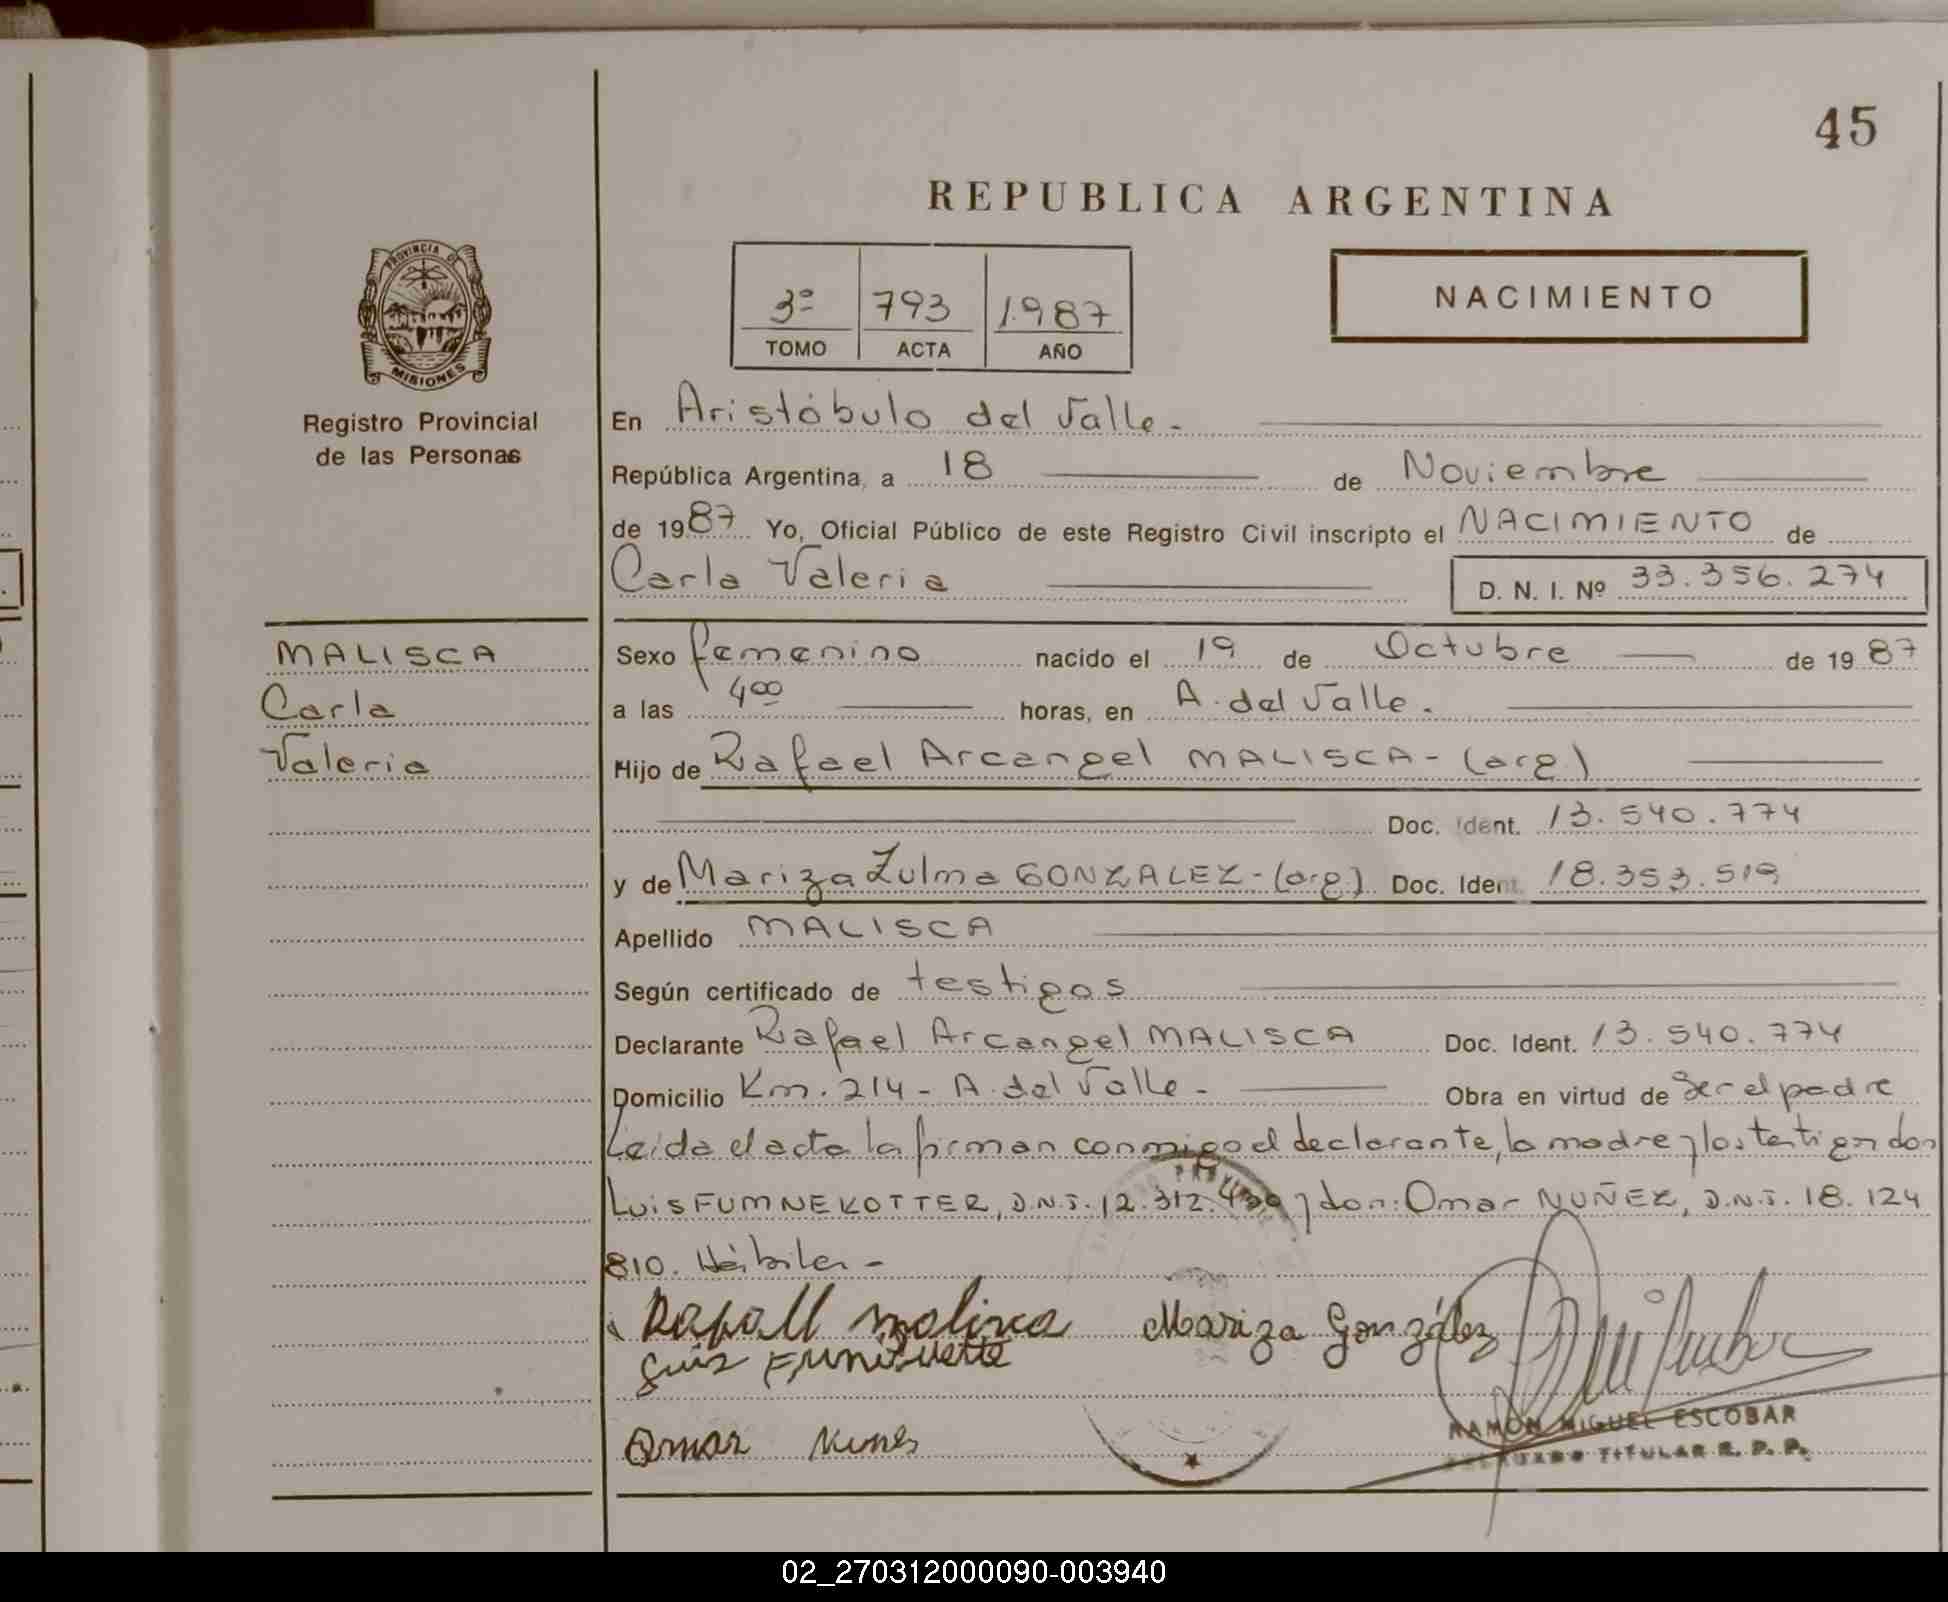 45
REPUBLICA ARGENTINA
PROVINCIA DE
MISIONES
Registro Provincial
de las Personas
3º 793 1987
TOMO ACTA AÑO
NACIMIENTO
En Aristóbulo del Valle.-
República Argentina, a 18 de Noviembre
de 1987 Yo, Oficial Público de este Registro Civil inscripto el NACIMIENTO de
Carla Valeria D. N. I. Nº 33.356.274
MALISCA
Carla
Valeria
Sexo femenino nacido el 19 de Octubre de 1987
a las 4⁰⁰ horas, en A. del Valle.
Hijo de Rafael Arcangel MALISCA - (arg)
Doc. Ident. 13.540.774
y de Mariza Zulma GONZALEZ - (arg) Doc. Ident. 18.353.519
Apellido MALISCA
Según certificado de testigos
Declarante Rafael Arcangel MALISCA Doc. Ident. 13.540.774
Domicilio Km. 214 - A. del Valle - Obra en virtud de ser el padre
Leida el acta la firman conmigo el declarante, la madre y los testigos don
Luis FUMNEKOTTER, D.N.I. 12.312.430 y don: Omar NUÑEZ, D.N.I. 18.124
810. Hábiles -
Rafaell malisca Mariza González
Luis
Omar Nunes
RAMON MIGUEL ESCOBAR
DELEGADO TITULAR R. P. P.
02_270312000090-003940